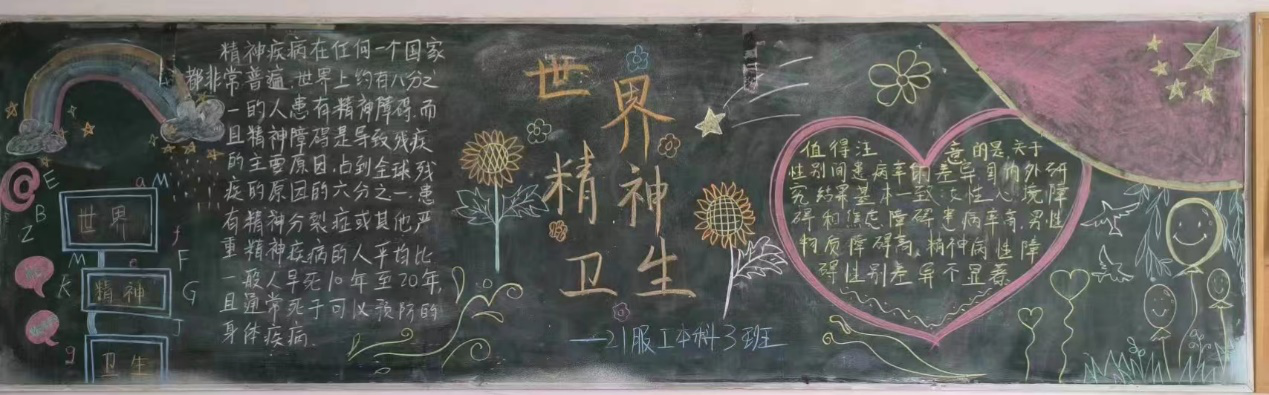 精神疾病在任何一个国家
都非常普遍,世界上约有八分之
一的人患有精神障碍,而
且精神障碍是导致残疾
的主要原因,占到全球残
疾的原因的六分之一,患
有精神分裂症或其他严
重精神疾病的人平均比
一般人早死10年至20年,
且通常死于可以预防的
身体疾病.
世界
精神
卫生
—21服工本科3班
值得注意的是,关于
性别间患病率的差异国内外研
究结果基本一致,女性心境障
碍和焦虑障碍患病率高,男性
物质障碍高,精神病性障
碍性别差异不显著
世界
精神
卫生
a M
E
B
Z
f
M e F
K G
T
g